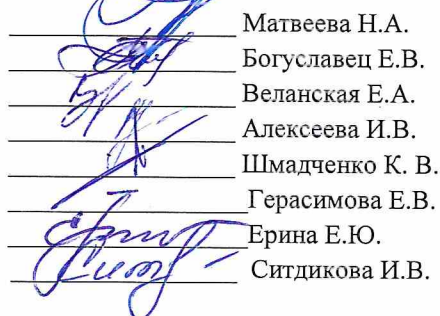 Матвеева Н.А.
Богуславец Е.В.
Веланская Е.А.
Алексеева И.В.
Шмадченко К. В.
Герасимова Е.В.
Ерина Е.Ю.
Ситдикова И.В.